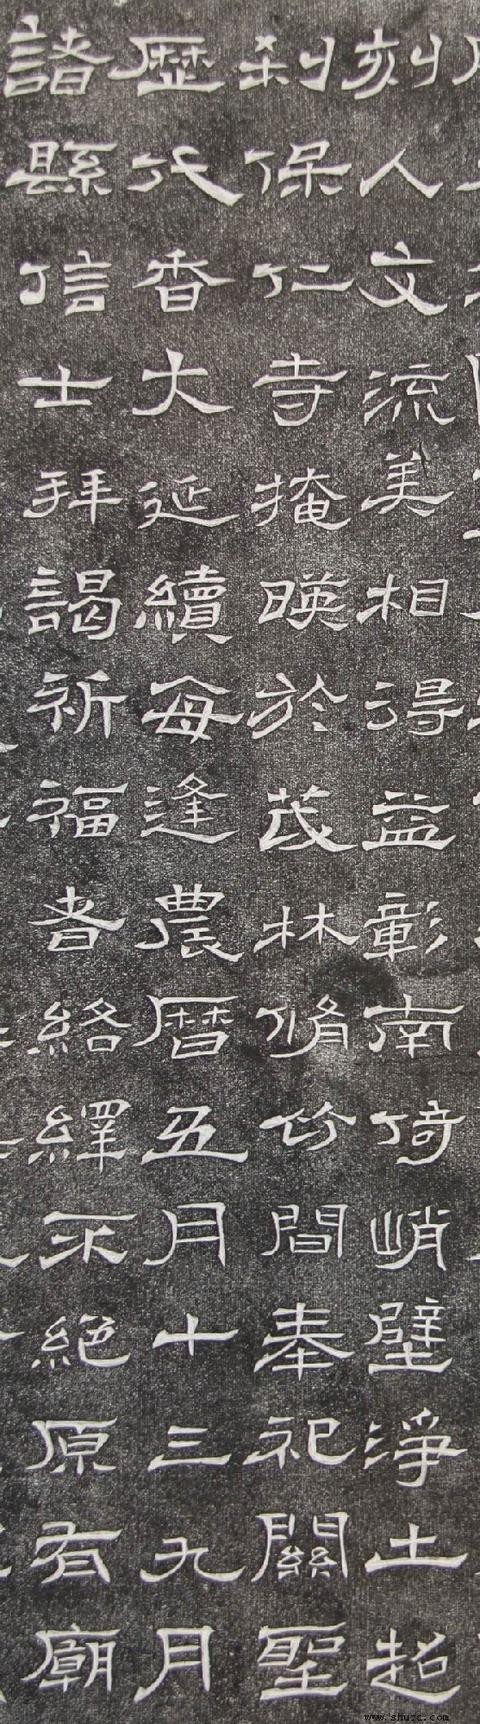 刻人文流美相得益彰南倚峭壁淨土超
刹保仁寺掩映於茂林脩竹間奉祀關聖
歷代香火延續每逢農曆五月十三九月
諸縣信士拜謁祈福者絡繹不絕原有廟
www.shufa.com